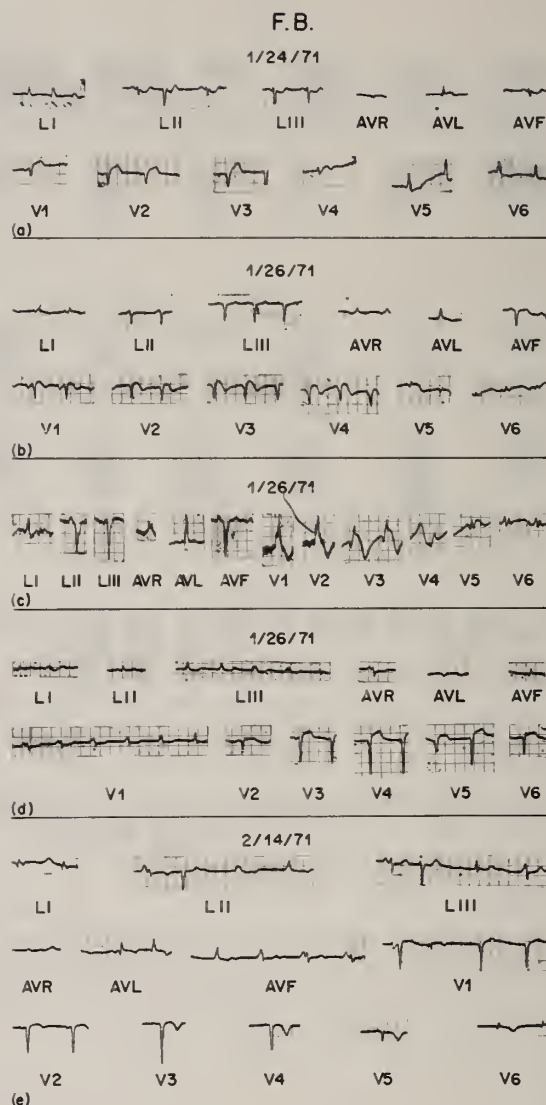 F.B.
1/24/71
LI LII LIII AVR AVL AVF
V1 V2 V3 V4 V5 V6
(a)
1/26/71
LI LII LIII AVR AVL AVF
V1 V2 V3 V4 V5 V6
(b)
1/26/71
LI LII LIII AVR AVL AVF V1 V2 V3 V4 V5 V6
(c)
1/26/71
LI LII LIII AVR AVL AVF
V1 V2 V3 V4 V5 V6
(d)
2/14/71
LI LII LIII
AVR AVL AVF V1
V2 V3 V4 V5 V6
(e)